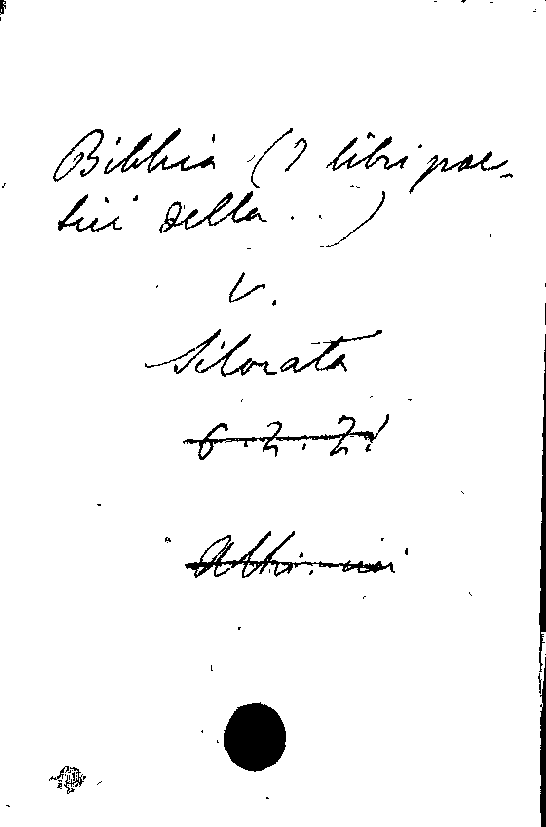 Bibbia (I libri poe-
tici della . . )
v.
Silorata
6.2.21